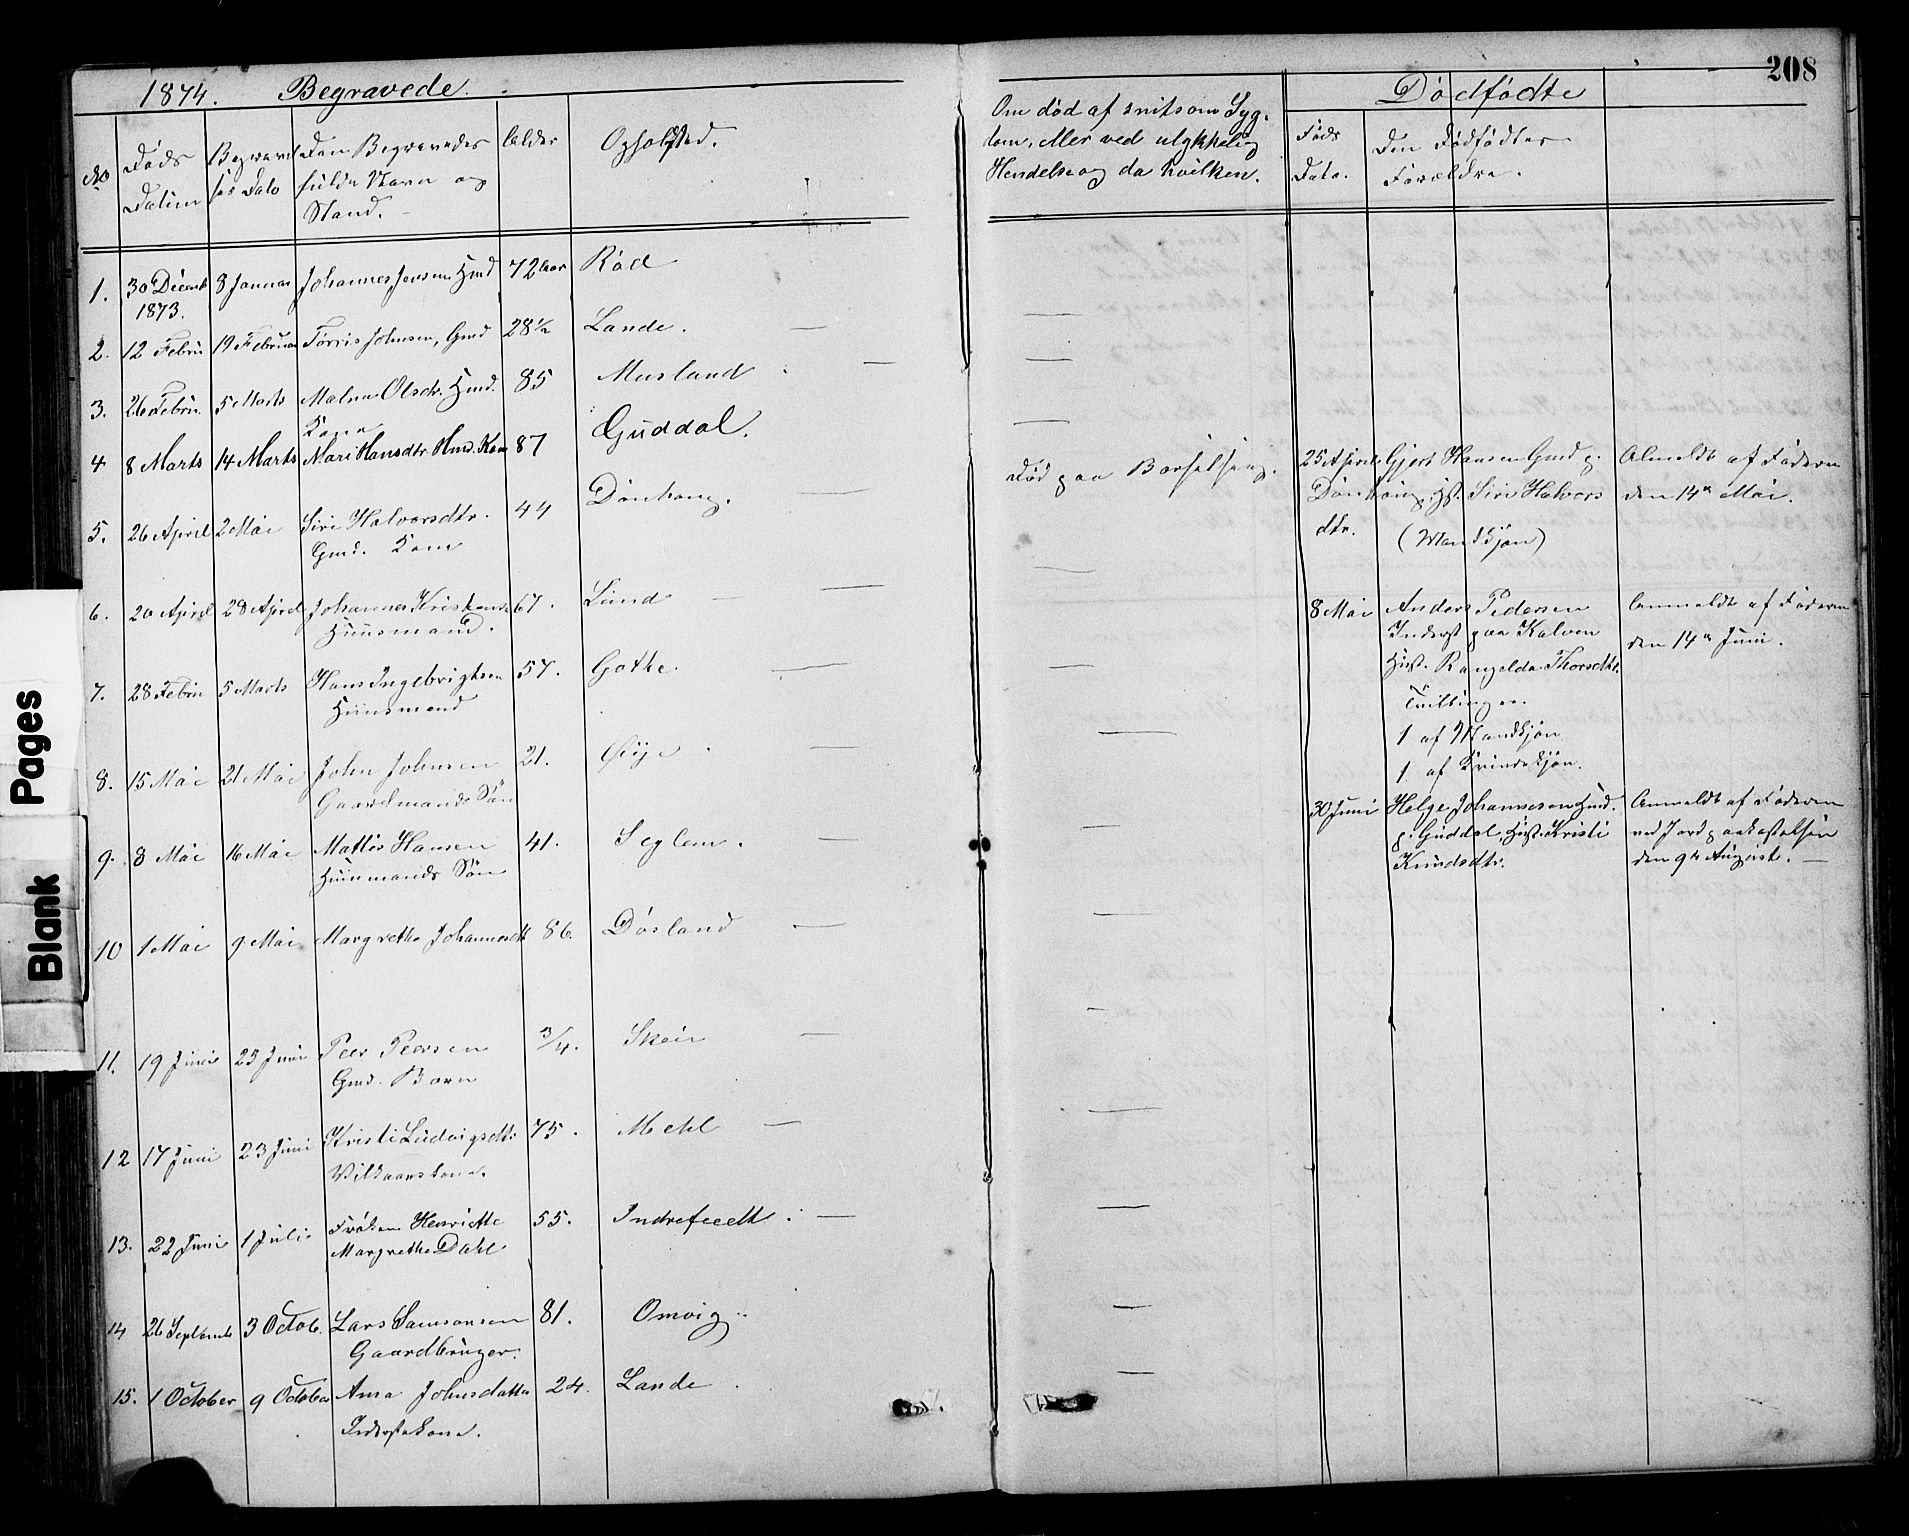 208
1874. Begravede.
No
Døds
Datum
Begravel
ses Dato
Den Begravedes
fulde Navn og
Stand.
Alder
Opholsted.
1. 30 Décemb 1873. 8 Januar Johannes Jensen Hmd 72 Aar Röd
2. 12 Febru 19 Februar Torris Johnsen, Gmd 28½ Lande.
3. 26 Febru. 5 Marts Malena Olsdtr. Hmd. Kone 85 Musland
4 8 Marts 14 Marts Mari Hansdtr Hmd. Kone 87 Guddal.
5. 26 April 2 Mai Siri Halvorsdtr. 44 Dönhaug.
Gmd. Kone
6. 20 April 28 April Johannes Kristens 67. Lund
Huusmand.
7. 28 Febru 5 Marts Hans Ingebrigtsen 57. Gothe.
Huusmand
8. 15 Mai 21 Mai John Johnsen 21. Øije
Gaardmands Sön
9. 8 Mai 16 Mai Mattis Hansen 41. Seglem.
Huusmands Sön
10 1 Mai 9 Mai Margrethe Johannesdt 86. Døsland
11. 19 Juni 23 Juni Peer Peersen 3/4. Skeie
Gmd. Barn
12 17 Juni 23 Juni Kristi Ludvigsdtr 75. Mehl
Vilkaarskone.
13. 22 Juni 1 Juli Frøken Henriette 55. Indrefeedt
Margrethe Dahl.
14 26 Septemb 3 Octob. Lars Samsonsen 81. Omvig
Gaardbruger.
15. 1 October 9 October Anna Johnsdatter 24. Lande
Inderstekone.
Om død af smitsom Syg-
dom, eller ved ulykkelig
Hendelse og da hvilken.
Död paa Barselseng.
Dødfødte
Føds
Dato.
Den Dødfødtes
Forældre.
25 April Gjert Hansen Gmd p. Anmeldt af Faderen
Dönhaug, Hst. Siri Halvors den 14de Mai.
dtr. (Mandkjön)
8 Mai Anders Pedersen Anmeldt af Faderen
Inderst paa Kalven den 14de Juni.
Hust. Rangelda Thorsdtr.
Tvillinger.
1 af Mandkjön
1 af Kvindekjön.
30 Juni Helge Johannesen Hmd. Anmeldt af Faderen
p. Guddal, Hust. Kristi ved Jordpaakastelsen
Knudsdtr. den 9de August.
Blank Pages